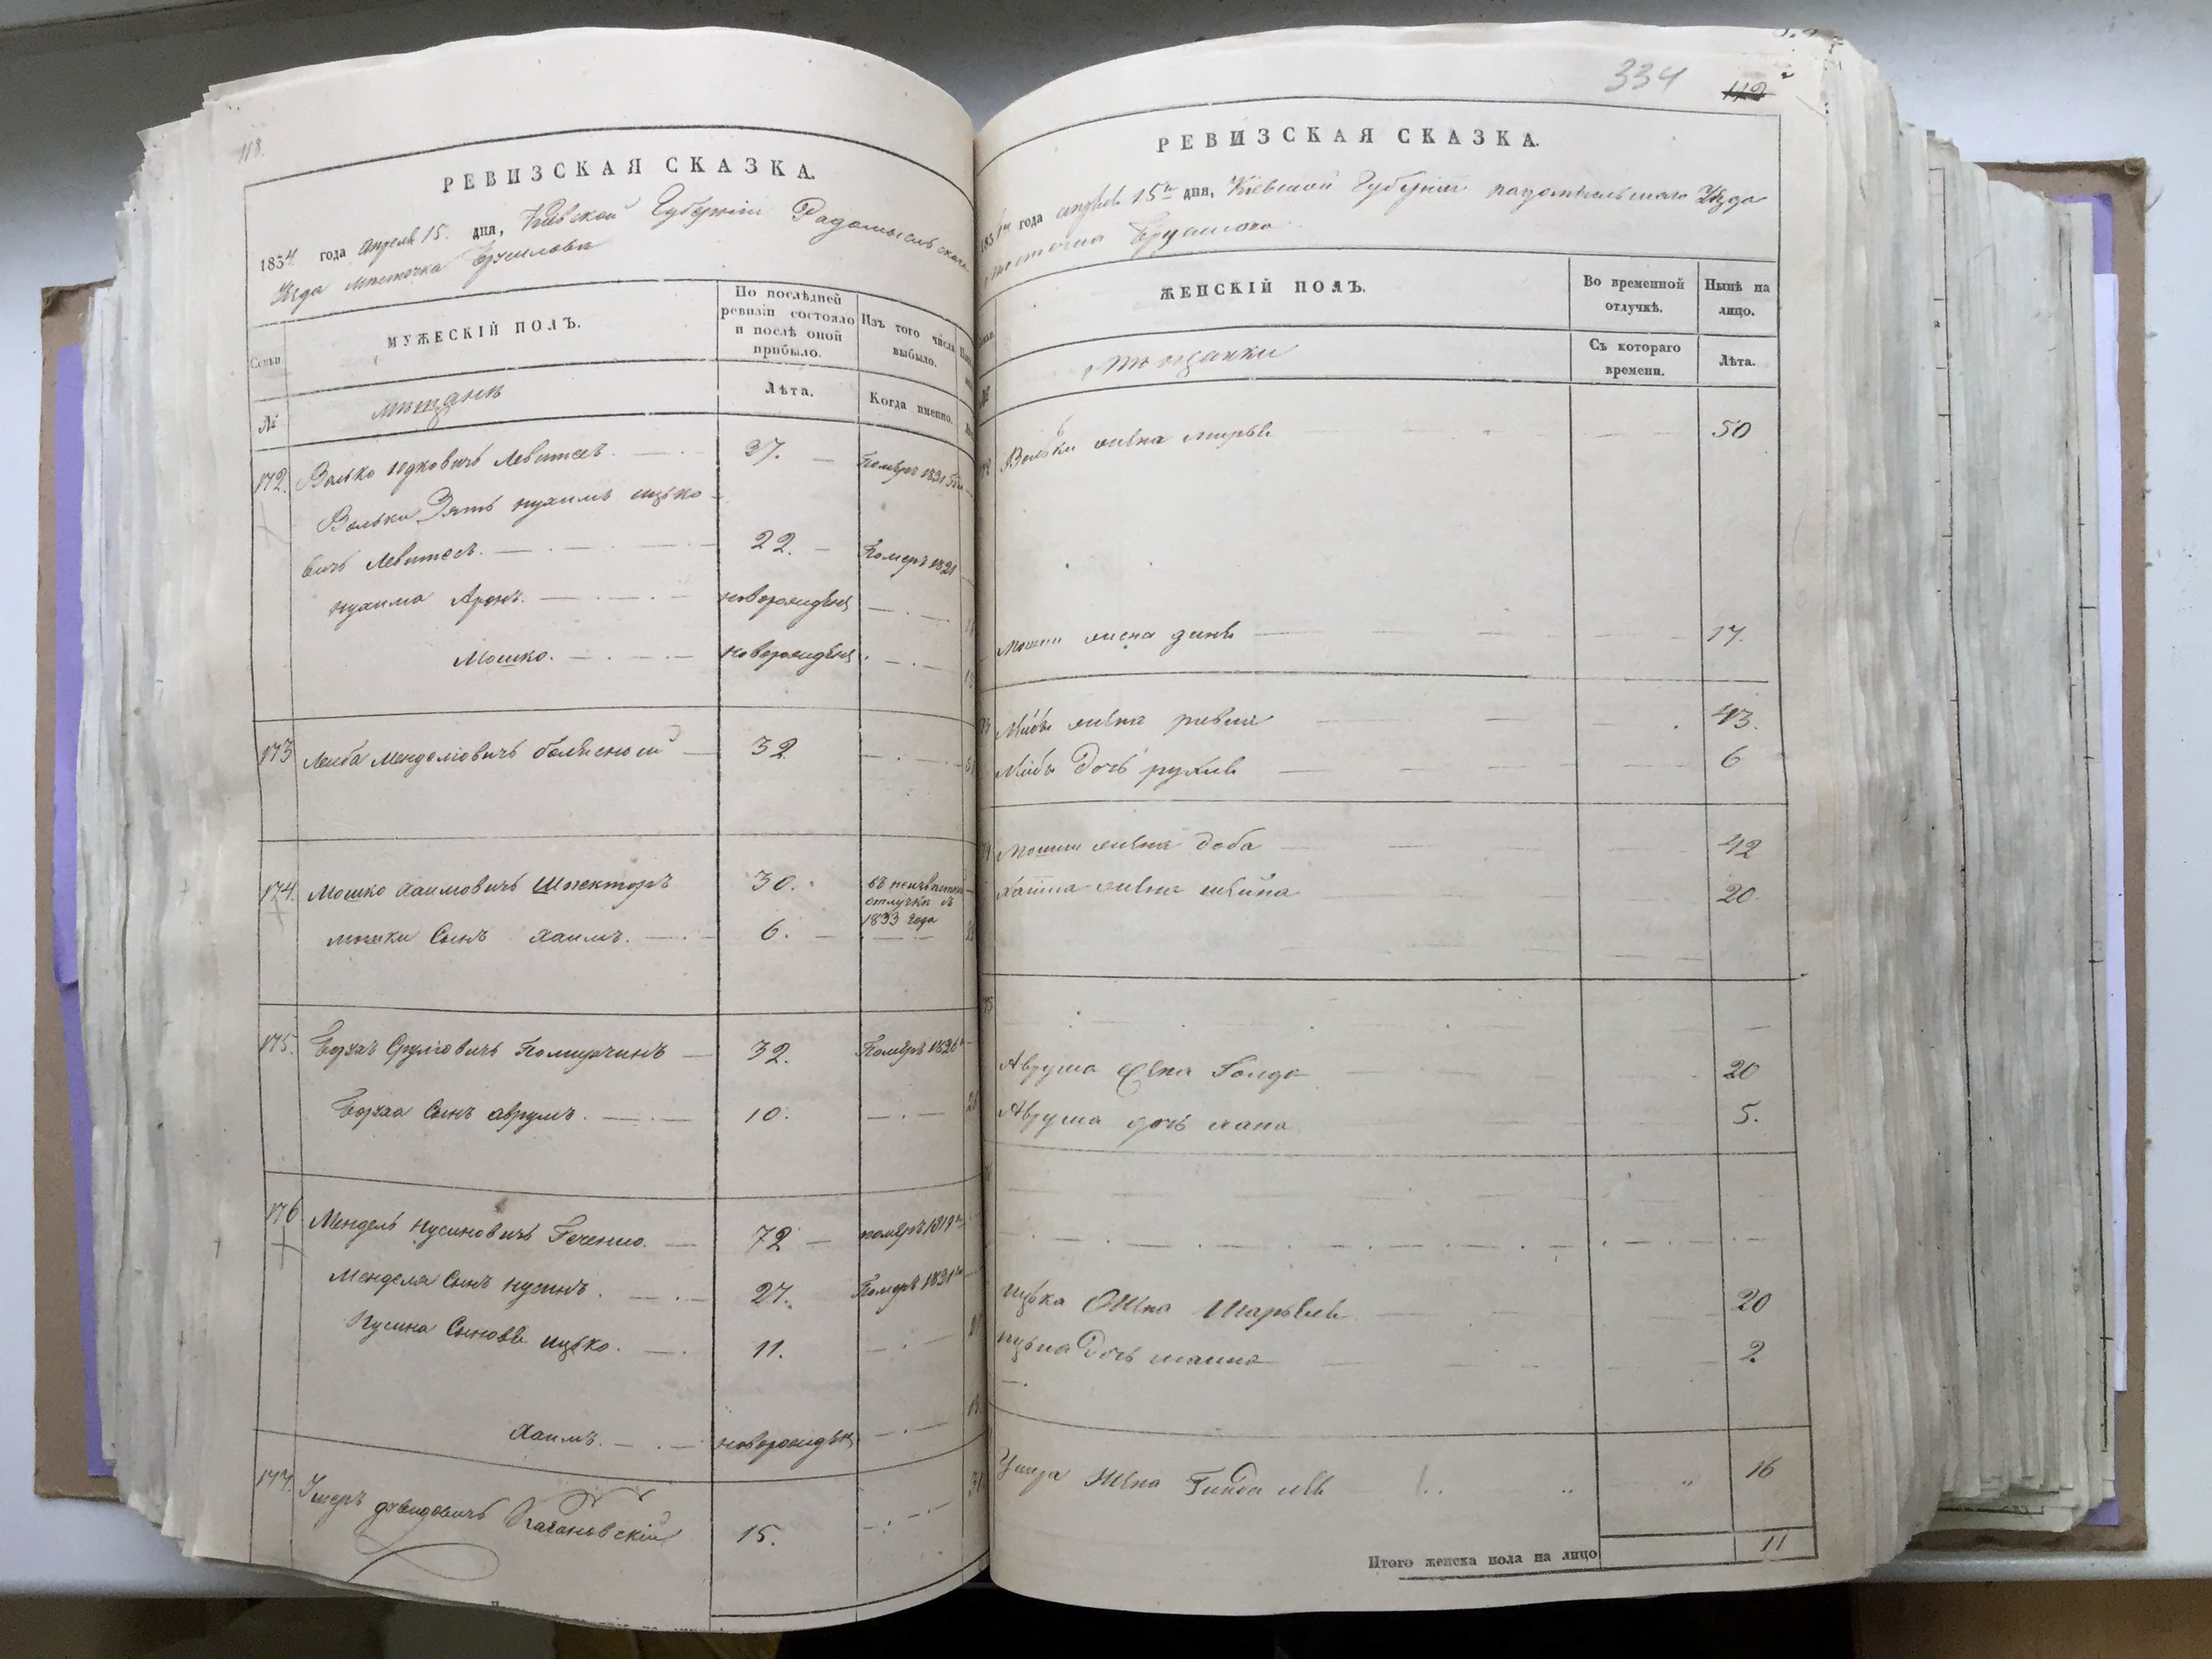 118.
РЕВИЗСКАЯ СКАЗКА.
1834 года апреля 15. дня, Киевской Губернии Радомысльскаго
Уезда местечка Брусилова
Семьи
МУЖЕСКІЙ ПОЛЪ.
По послѣдней
ревизіи состояло
и послѣ оной
прибыло.
Изъ того числа
выбыло.
№
мещане
Лѣта.
Когда именно.
172. Волько Юдковичъ Левитесъ. 37. Померъ 1831
Вольки Зять нухимъ ицько
вичъ Левитесъ. 22. Померъ 1821
нухима Аронъ. новорожденъ
Мошко. новорожденъ
173 Лейба Менделіовичъ 32
174. Мошко Хаимовичъ Шпекторъ 30. въ неизвестной
отлучки съ
1833 года
мошки Сынъ Хаимъ. 6.
175. Сруліовичъ 32. Померъ 1826
Сынъ аврумъ. 10.
176 Мендель нусиновичъ 72 померъ 1819
Менделя Сынъ нусинъ. 27. Померъ 1831
Нусина Сыновья ицько. 11.
Хаимъ. новорожденъ
177. Ушеръ давидовичъ Качановскій 15.
334
112
РЕВИЗСКАЯ СКАЗКА.
года апреля 15 дня, Киевской Губернии радомысльского Уезда
местечка Брусилова
ЖЕНСКІЙ ПОЛЪ.
Во временной
отлучкѣ.
Нынѣ на
лицо.
№
мещанки
Съ котораго
времени.
Лѣта.
Вольки жена мирья 50
Мошки жена 17.
Лейбы жена ривка 43.
Лейбы Дочь рухля 6
Мошки жена доба 42
Хаима жена шейна 20.
Аврума жена Голда 20
Аврума дочь хана 5.
ицька жена 20
ицька Дочь 2.
Ушера Жена 16
Итого женска пола на лицо 11